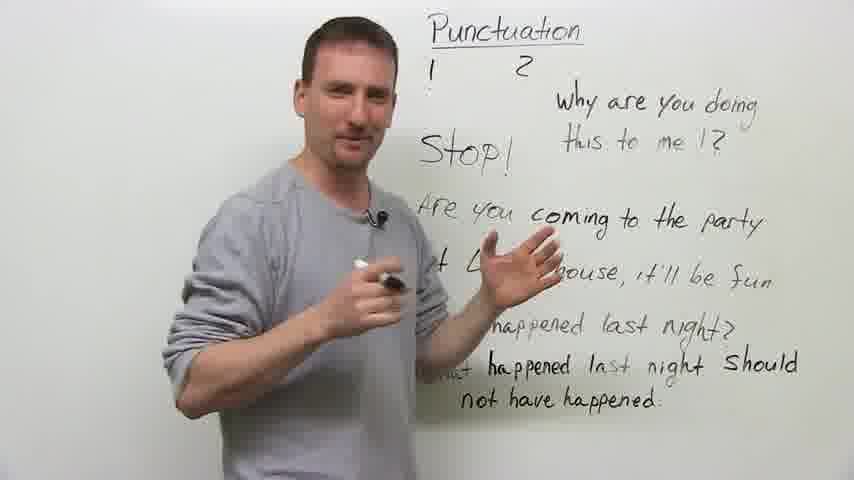 Punctuation
! ?
Why are you doing
this to me !?
Stop!
Are you coming to the party
house, it'll be fun
happened last night?
happened last night should
not have happened.